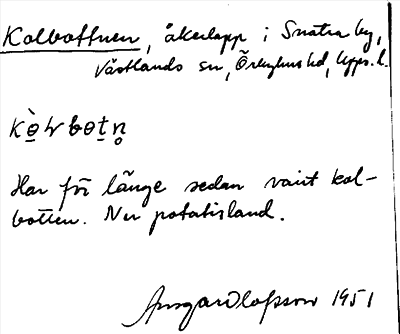 Kolbottnen, åkerlapp i Snatra by,
Västlands sn, Örbyhus hd, Upps. l.
Har för länge sedan varit kol-
botten. Nu potatisland.
Ansgar Olofsson 1951